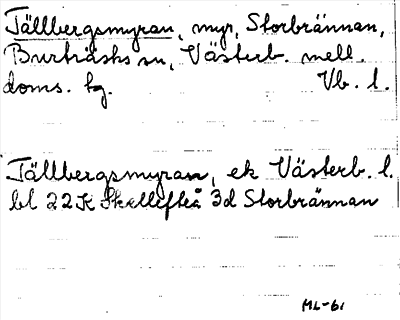 Tällbergsmyran, myr, Storbrännan,
Burträsks sn, Västerb. mell.
doms. tg. Vb. l.
Tällbergsmyran, ek Västerb. l.
bl 22K Skellefteå 3d Storbrännan
ML-61